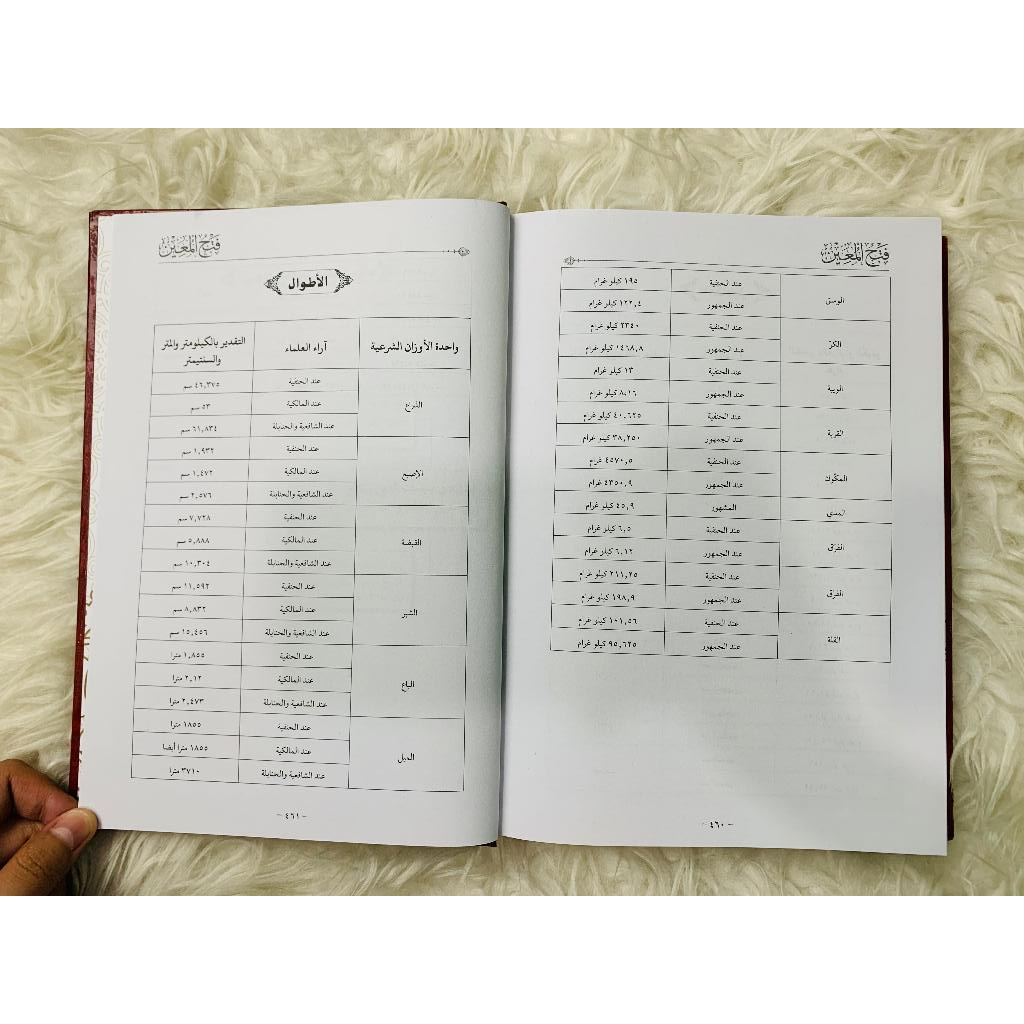 فتح المعين
الوسق عند الحنفية ١٩٥ كيلو غرام
عند الجمهور ١٢٢,٤ كيلو غرام
الكر عند الحنفية ٢٣٤٠ كيلو غرام
عند الجمهور ١٤٦٨,٨ كيلو غرام
الويبة عند الحنفية ١٣ كيلو غرام
عند الجمهور ٨,١٦ كيلو غرام
القربة عند الحنفية ٤٠,٦٢٥ كيلو غرام
عند الجمهور ٣٨,٢٥٠ كيلو غرام
المكّوك عند الحنفية ٤٥٧٠,٥ غرام
عند الجمهور ٤٣٥٠,٩ غرام
المدي المشهور ٤٥,٩ كيلو غرام
الفراق عند الحنفية ٦,٥ كيلو غرام
عند الجمهور ٦,١٢ كيلو غرام
الفرق عند الحنفية ٢١١,٢٥ كيلو غرام
عند الجمهور ١٩٨,٩ كيلو غرام
القلة عند الحنفية ١٠١,٥٦ كيلو غرام
عند الجمهور ٩٥,٦٢٥ كيلو غرام
- ٤٦٠ -
فتح المعين
الأطوال
واحدة الأوزان الشرعية آراء العلماء التقدير بالكيلومتر والمتر
والسنتيمتر
الذراع عند الحنفية ٤٦,٣٧٥ سم
عند المالكية ٥٣ سم
عند الشافعية والحنابلة ٦١,٨٣٤ سم
الإصبع عند الحنفية ١,٩٣٢ سم
عند المالكية ١,٤٧٢ سم
عند الشافعية والحنابلة ٢,٥٧٦ سم
القبضة عند الحنفية ٧,٧٢٨ سم
عند المالكية ٥,٨٨٨ سم
عند الشافعية والحنابلة ١٠,٣٠٤ سم
الشبر عند الحنفية ١١,٥٩٢ سم
عند المالكية ٨,٨٣٢ سم
عند الشافعية والحنابلة ١٥,٤٥٦ سم
الباع عند الحنفية ١,٨٥٥ مترا
عند المالكية ٢,١٢ مترا
عند الشافعية والحنابلة ٢,٤٧٣ مترا
الميل عند الحنفية ١٨٥٥ مترا
عند المالكية ١٨٥٥ مترا أيضا
عند الشافعية والحنابلة ٣٧١٠ مترا
- ٤٦١ -